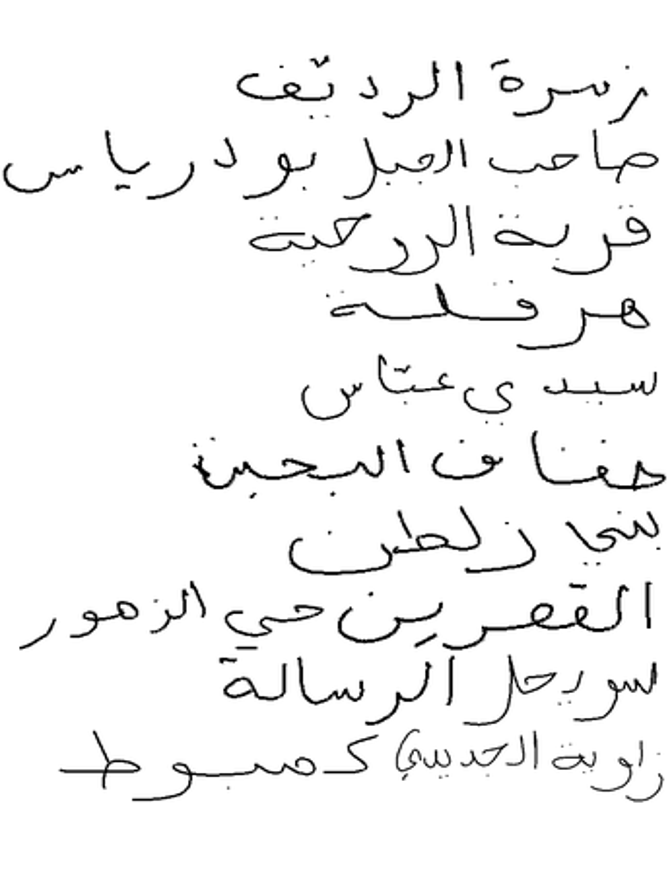 الرديّف
صاحب الجبل بودرياس
قرية
هرقلة
سيدي عبّاس
ضفاف البحيرة
بني زلطن
القصرين حي الزهور
سويحل الرسالة
زاوية الجديدي كمبوط